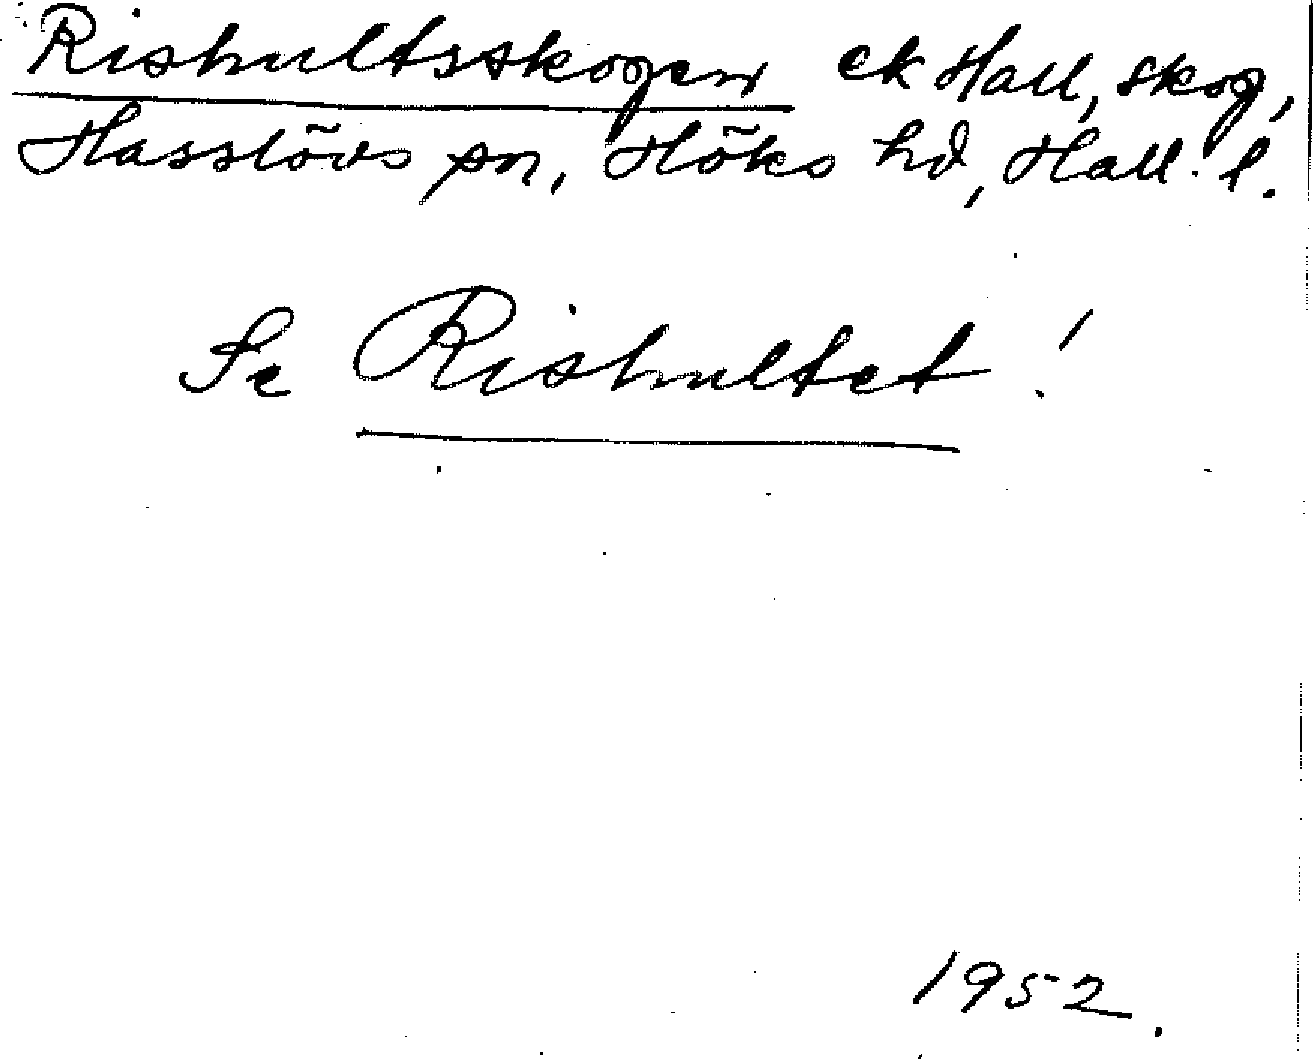 Rishultsskogen ek Hall, skog,
Hasslövs sn, Höks hd, Hall. l.
Se Rishultet!
1952.